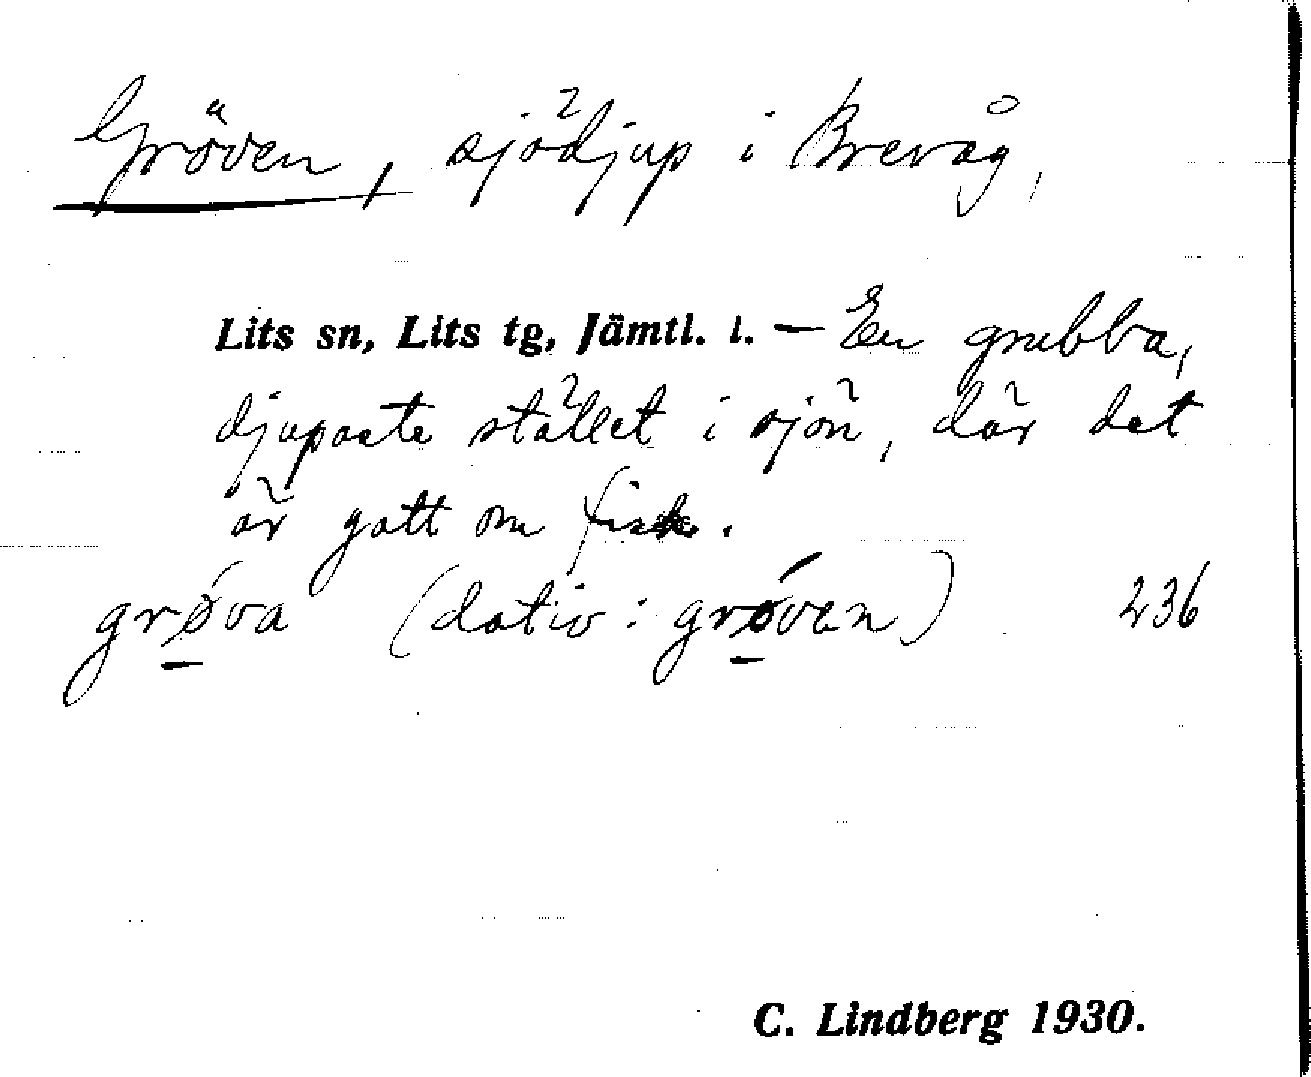 Gröven, sjödjup i Brevåg,
Lits sn, Lits tg, Jämtl. l. — En grubba,
djupaste stället i sjön, där det
är gott om fisk.
grǿ̱va (dativ: grǿ̱ven) 236
C. Lindberg 1930.